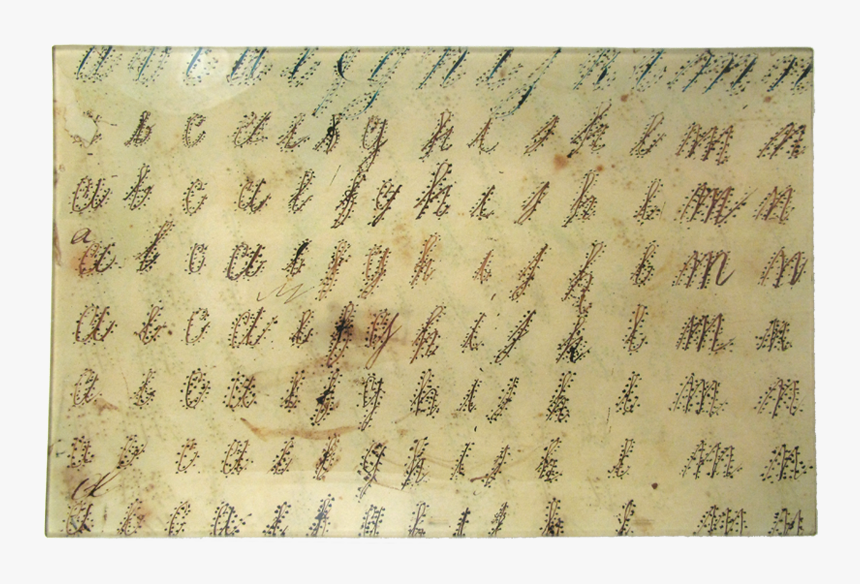 a b c d e f g h i j k l m n
b c d e f g h i j k l m n
a b c d e f g h i j k l m n
a
a b c d e f g h i j k l m n
a b c d e f g h i j k l m n
a b c d e f g h i j k l m n
a b c d e f g h i j k l m n
a b c d e f g h i j k l m n